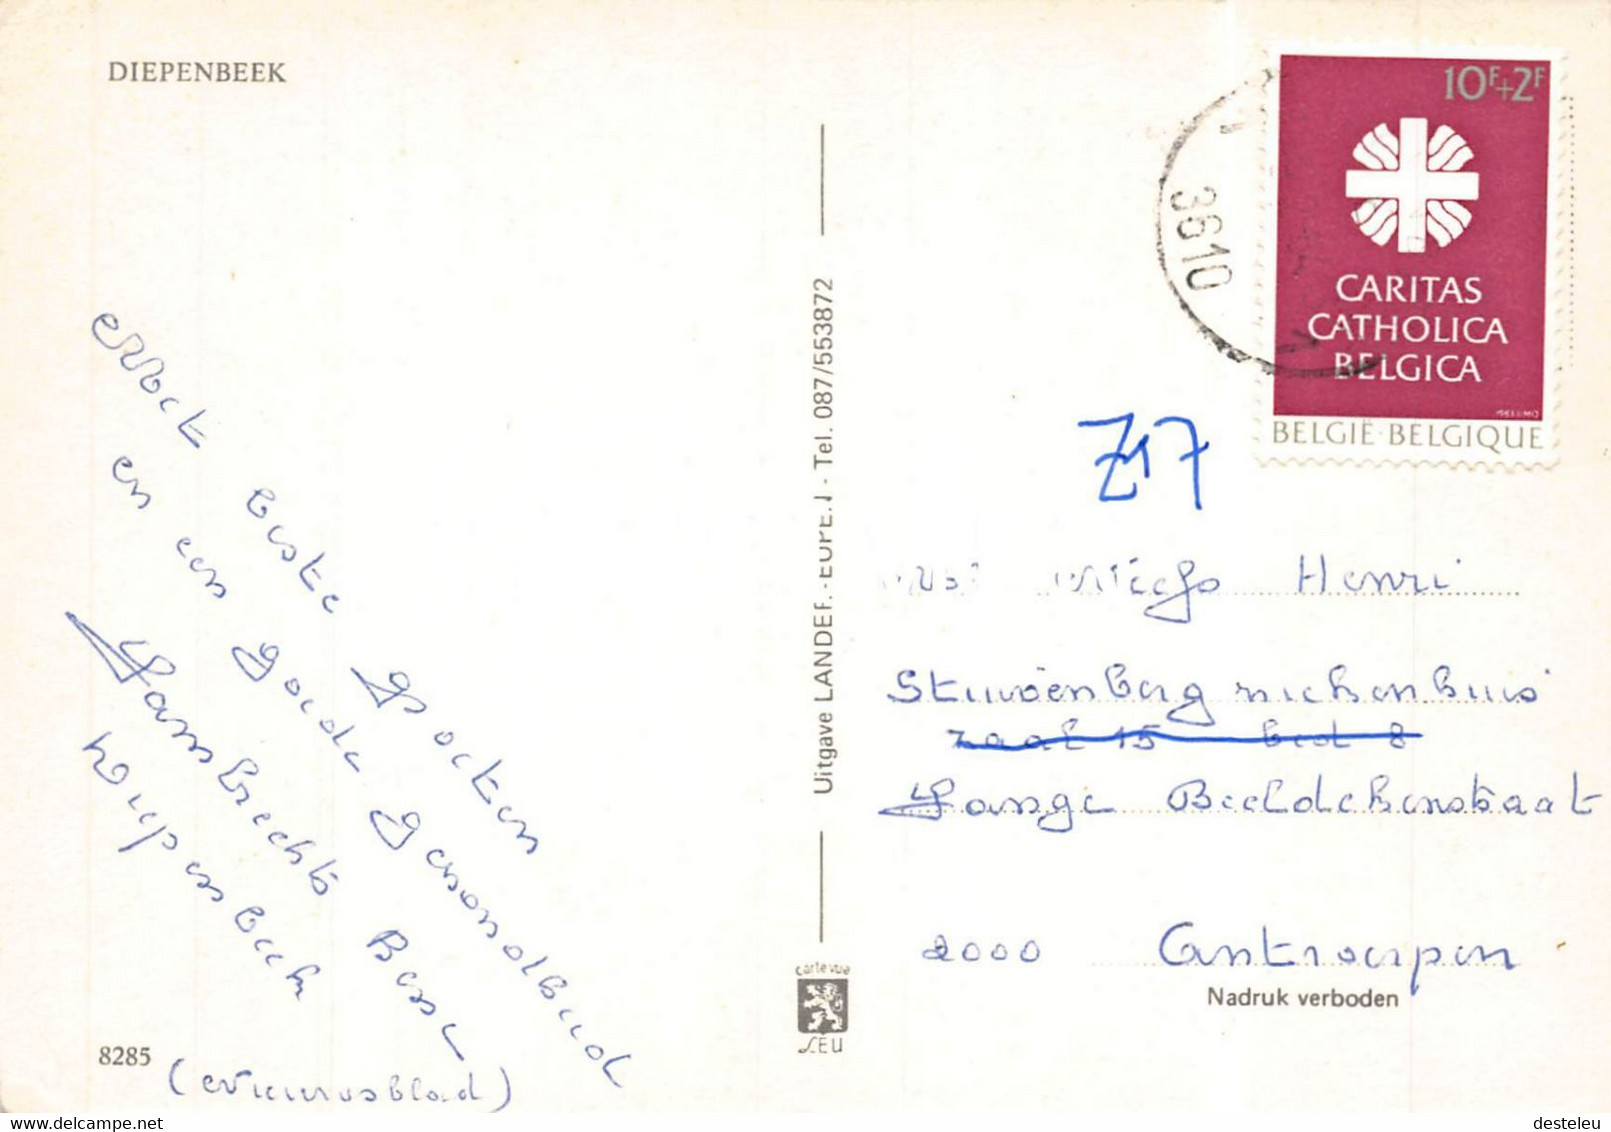 DIEPENBEEK
10F+2F
CARITAS
CATHOLICA
BELGICA
BELGIË·BELGIQUE
3610
Z17
beste Groeten
en een Goede Gezondheid
Lambrechts
Diepenbeek
8285
Uitgave LANDEF.-EUPEN - Tel. 087/553872
carte vue
LEU
Henri
Stuivenberg ziekenhuis
zaal 15 bed 8
Lange Beeldekensstraat
2000 Antwerpen
Nadruk verboden
desteleu